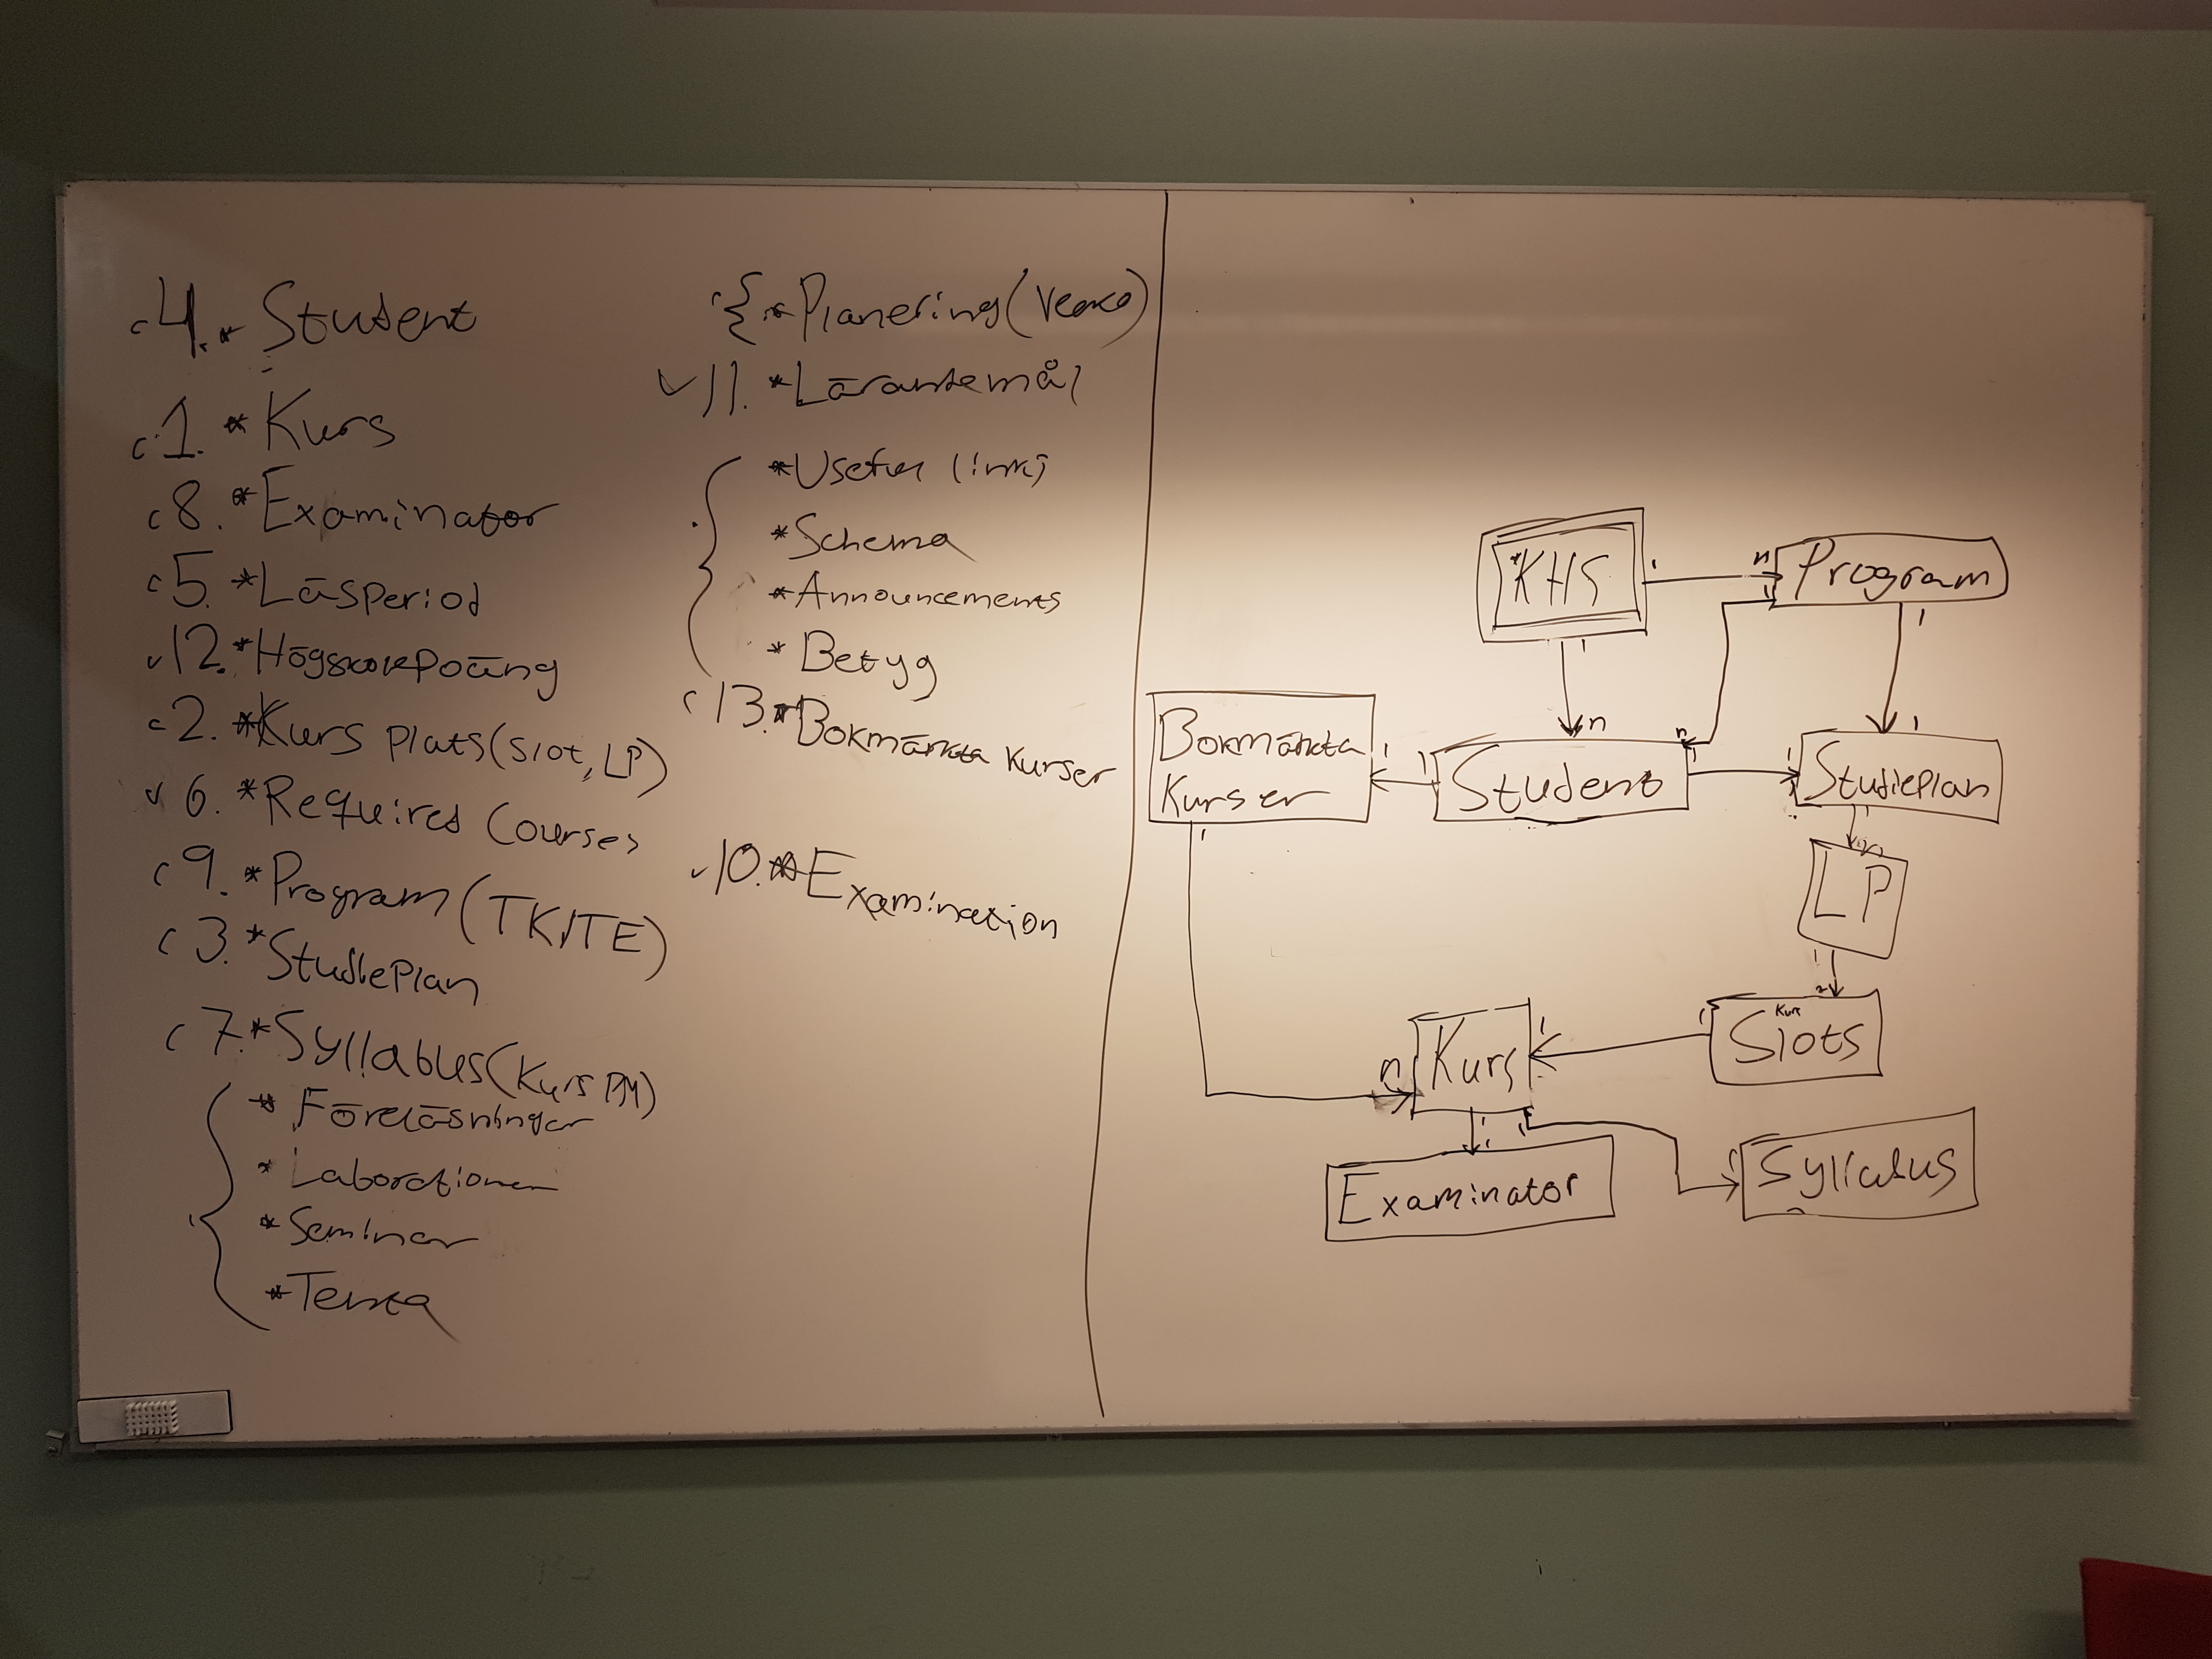 c 4. * Student
c 1. * Kurs
c 8. * Examinator
c 5. * Läsperiod
v 12. * Högskolepoäng
c 2. * Kurs plats (slot, LP)
v 6. * Required Courses
c 9. * Program (TKITE)
c 3. * Studieplan
c 7. * Syllables (Kurs PM)
* Föreläsningar
* Laborationer
* Seminar
* Tenta
* Planering (Vecko)
v 11. * Lärandemål
* Useful links
* Schema
* Announcements
* Betyg
c 13. * Bokmärkta Kurser
v 10. * Examination
*KHS
1
n
Program
1
1
1
n
n
1
1
Bokmärkta
Kurser
1
1
Student
1
Studieplan
1
1
n
LP
1
2
Kurs
Slots
1
1
n
Kurs
1
1
1
Examinator
1
Syllabus